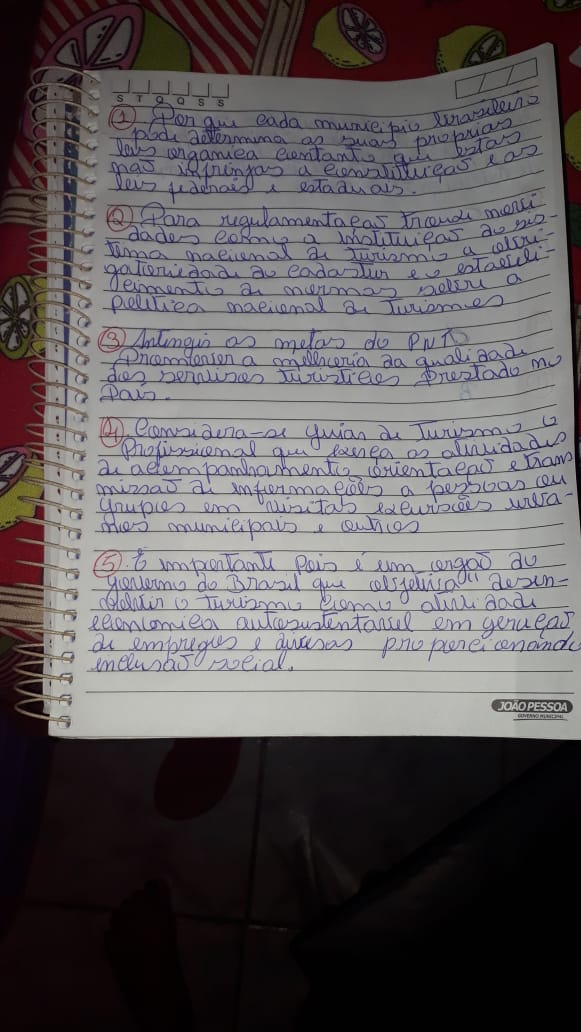 S T Q Q S S
① Por que cada municipio brasileiro
pode determina as suas proprias
leis organica contanto que estas
não infrinjas a constituição e as
leis federais e estaduais.
② Para regulamentação trouxe novi
dades como a instituição do sis-
tema nacional de turismo a obri-
gatoriedade do cadastur e o estabele-
cimento de normas sobre a
politica nacional de turismos
③ Antingir as metas do PNT
Promover a melhoria da qualidade
dos servisos turisticos prestado no
País.
④ Considera-se guias de turismo o
Profissional que exerça as atividades
de acompanhamento, orientação e trans
missão de informações a pessoas ou
grupos em visitas excursões urba-
nas municipais e outros
⑤ É importante Pois é um orgão do
governo do Brasil que objetiva desen-
volvir o turismo como atividade
economica autosustentavel em geração
de empregos e divisas proporcionando
inclusão social.
JOÃO PESSOA
GOVERNO MUNICIPAL